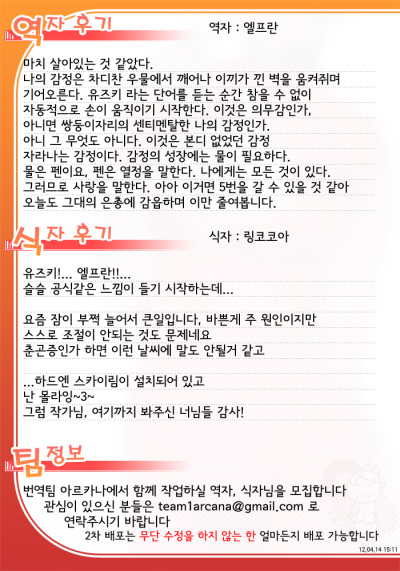 역자 후기
역자 : 엘프란
마치 살아있는 것 같았다.
나의 감정은 차디찬 우물에서 깨어나 이끼가 낀 벽을 움켜쥐며
기어오른다. 유즈키 라는 단어를 듣는 순간 참을 수 없이
자동적으로 손이 움직이기 시작한다. 이것은 의무감인가,
아니면 쌍둥이자리의 센티멘탈한 나의 감정인가.
아니 그 무엇도 아니다. 이것은 본디 없었던 감정
자라나는 감정이다. 감정의 성장에는 물이 필요하다.
물은 펜이요, 펜은 열정을 말한다. 나에게는 모든 것이 있다.
그러므로 사랑을 말한다. 아아 이거면 5번을 갈 수 있을 것 같아
오늘도 그대의 은총에 감읍하며 이만 줄여봅니다.
식자 후기
식자 : 링코코아
유즈키!... 엘프란!!...
슬슬 공식같은 느낌이 들기 시작하는데...
요즘 잠이 부쩍 늘어서 큰일입니다, 바쁜게 주 원인이지만
스스로 조절이 안되는 것도 문제네요
춘곤증인가 하면 이런 날씨에 말도 안될거 같고
...하드엔 스카이림이 설치되어 있고
난 몰라잉~3~
그럼 작가님, 여기까지 봐주신 너님들 감사!
팀 정보
번역팀 아르카나에서 함께 작업하실 역자, 식자님을 모집합니다
관심이 있으신 분들은 team1arcana@gmail.com 로
연락주시기 바랍니다
2차 배포는 무단 수정을 하지 않는 한 얼마든지 배포 가능합니다
12,04,14 15:11